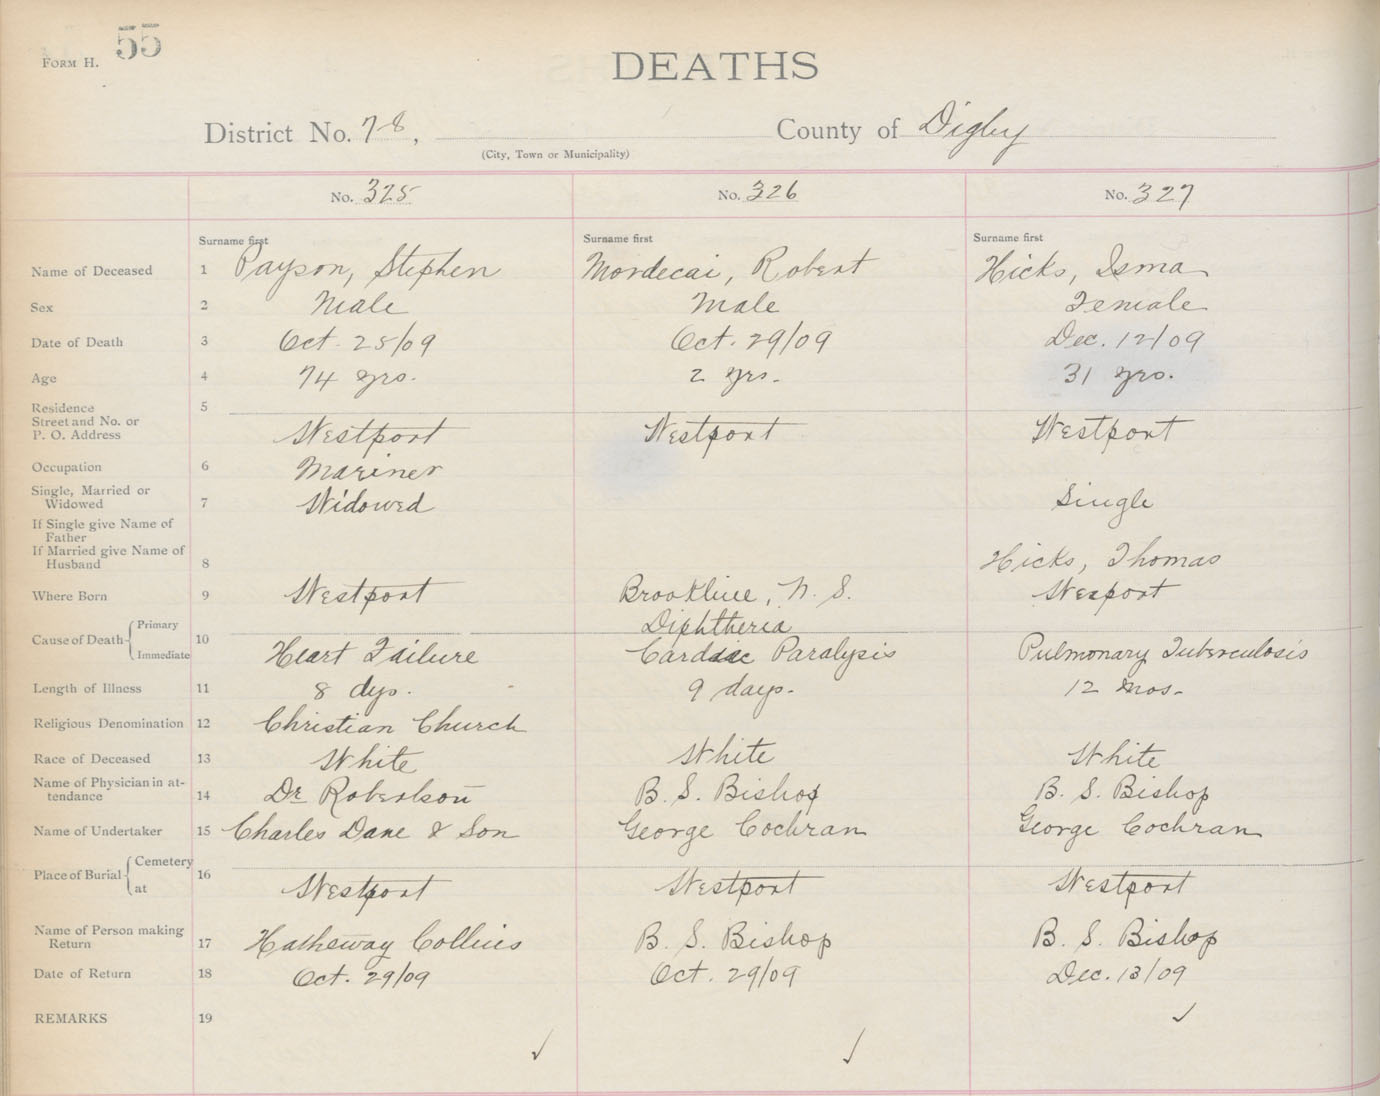 FORM H. 55
DEATHS
District No. 78, County of Digby
(City, Town or Municipality)
No. 325 No. 326 No. 327
Surname first Surname first Surname first
Name of Deceased 1 Payson, Stephen Mordecai, Robert Hicks, Isma
Sex 2 Male Male Female
Date of Death 3 Oct. 25/09 Oct. 29/09 Dec. 12/09
Age 4 74 yrs. 2 yrs. 31 yrs.
Residence 5
Street and No. or
P. O. Address Westport Westport Westport
Occupation 6 Mariner
Single, Married or
Widowed 7 Widowed Single
If Single give Name of
Father
If Married give Name of
Husband 8 Hicks, Thomas
Where Born 9 Westport Brookline, N. S. Wesport
Primary Diphtheria
Cause of Death 10
Immediate Heart Failure Cardiac Paralysis Pulmonary Tuberculosis
Length of Illness 11 8 dys. 9 days. 12 mos.
Religious Denomination 12 Christian Church
Race of Deceased 13 White White White
Name of Physician in at-
tendance 14 Dr Robertson B. S. Bishop B. S. Bishop
Name of Undertaker 15 Charles Dane & Son George Cochran George Cochran
Cemetery
Place of Burial 16
at Westport Westport Westport
Name of Person making
Return 17 Hatheway Collins B. S. Bishop B. S. Bishop
Date of Return 18 Oct. 29/09 Oct. 29/09 Dec. 13/09
REMARKS 19